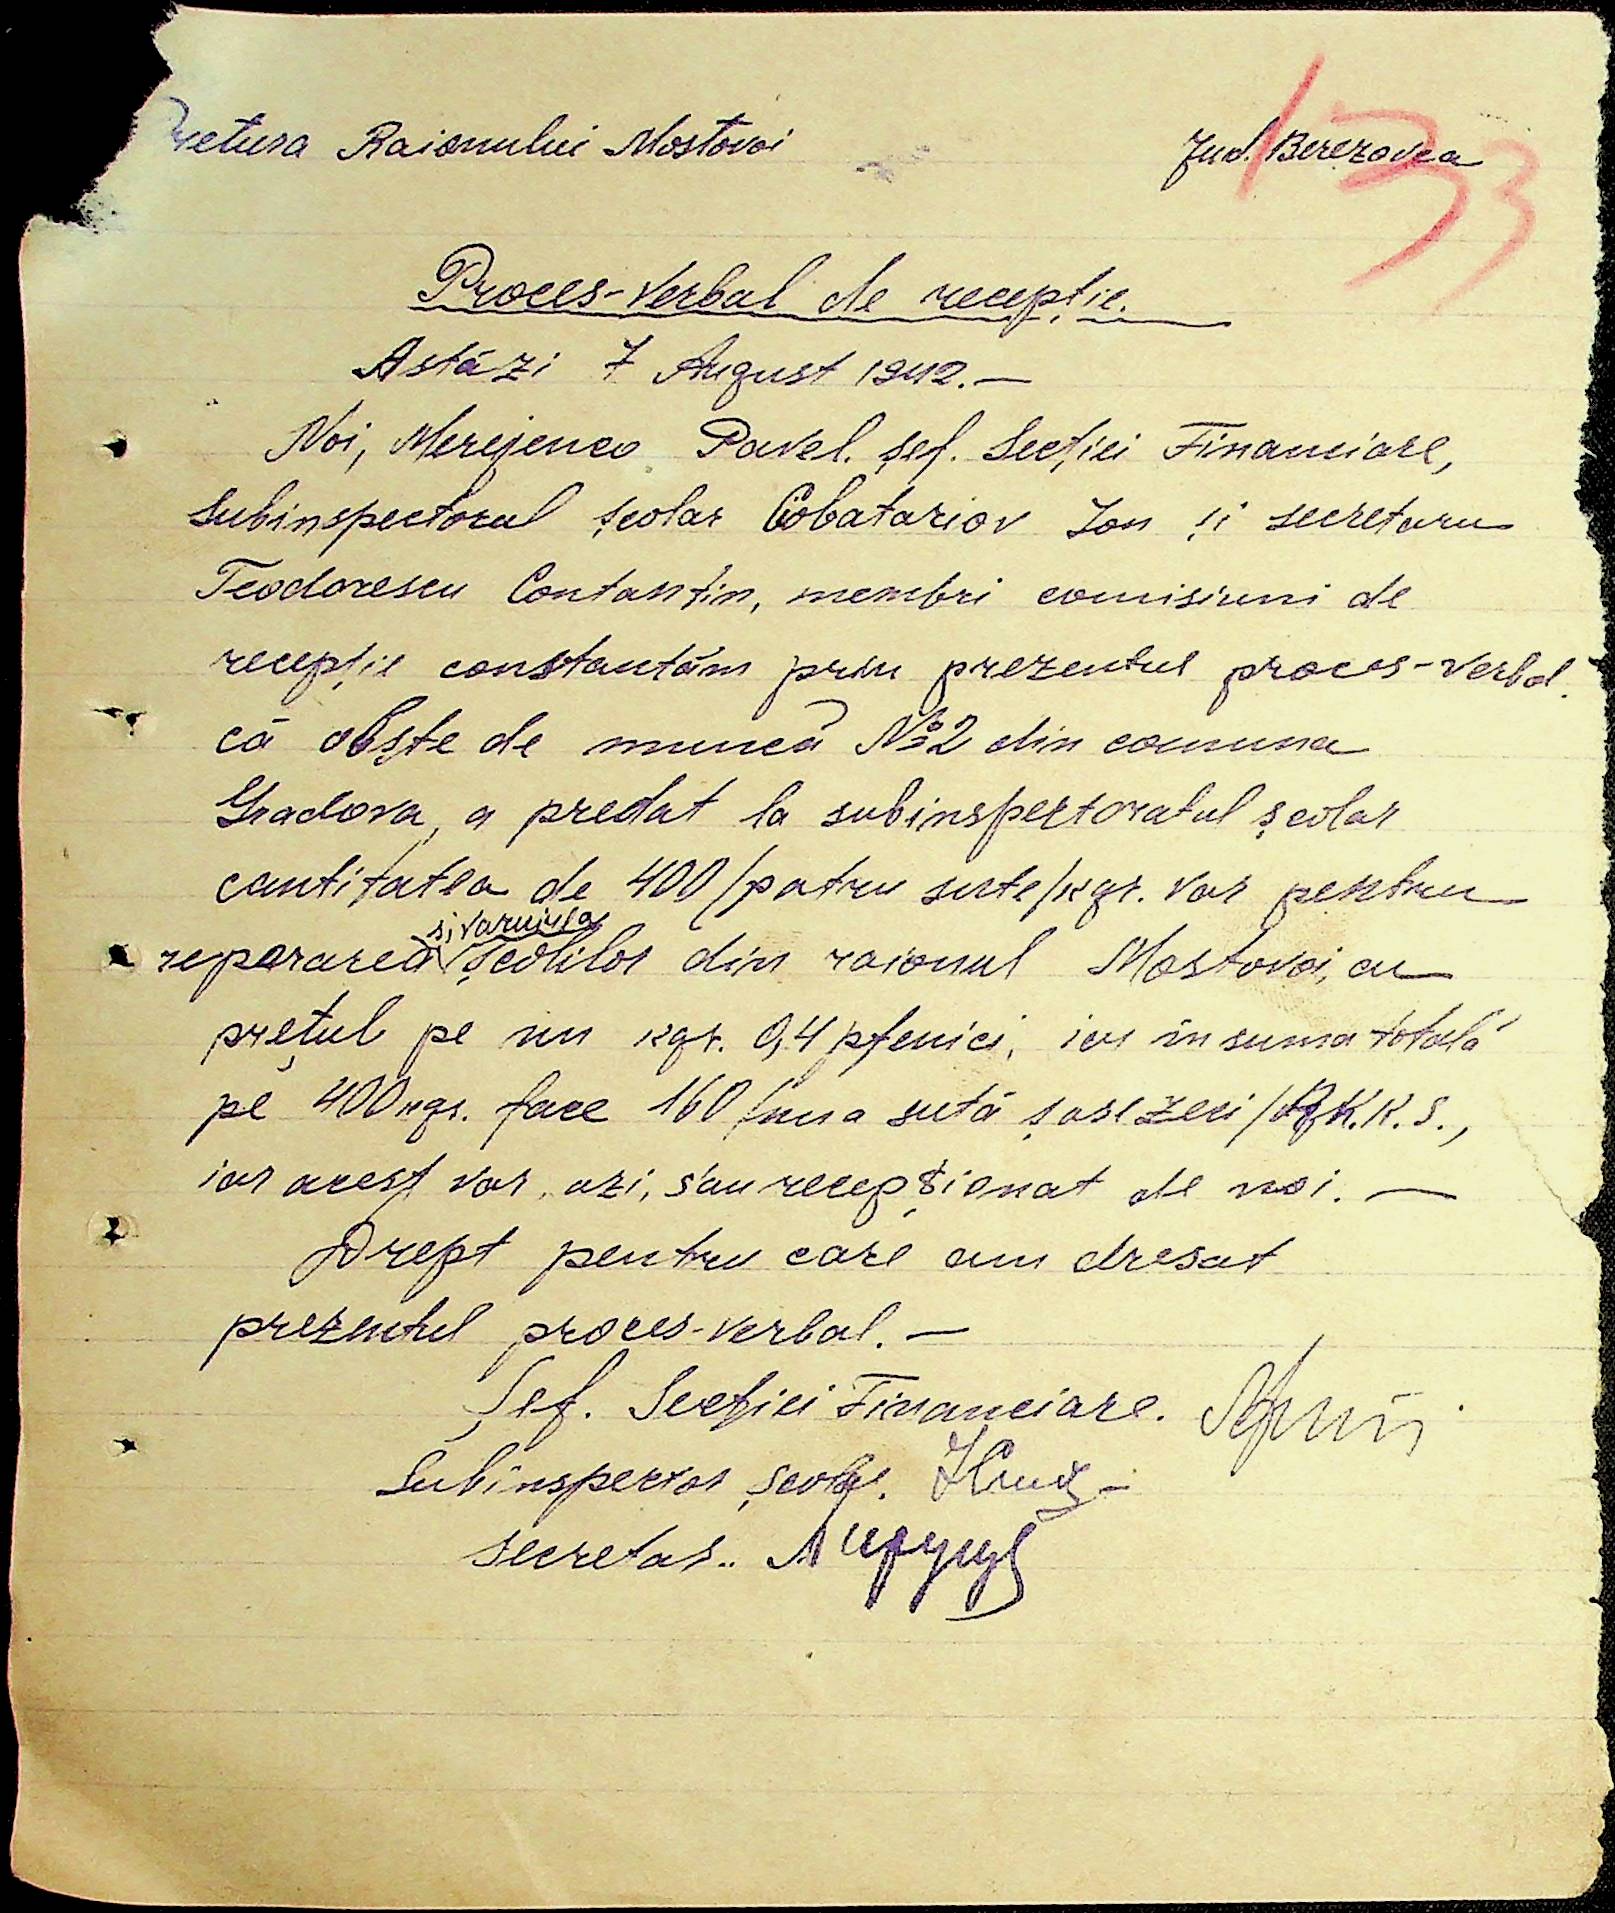 Pretura Raionului Mostovoi Jud. Berezovca
133
Proces-verbal de recepție.
Astăzi 7 August 1942.—
Noi, Merejenco Pavel. șef. Secției Financiare,
Subinspectorul școlar Cobatariov Ion și secretaru
Teodorescu Contantin, membri comisiuni de
recepție constantăm prin prezentul proces-verbal
că obște de muncă № 2 din comuna
Gradova, a predat la subinspectoratul școlar
cantitatea de 400 /patru sute/ kgr. var pentru
și varuirea
repararea școlilor din raionul Mostovoi, cu
prețul pe un kgr. 0,4 pfenici, iar în suma totală
pe 400 kgr. face 160 /una sută șasezeci/ R.K.K.S.,
iar acest var, azi, s'au recepționat de noi. —
Drept pentru care am dresat
prezentul proces-verbal. —
Șef. Secției Financiare.
Subinspector școlar.
Secretar..